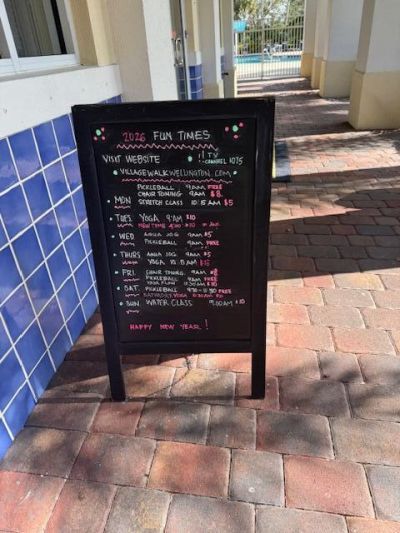 2026 FUN TIMES
VISIT WEBSITE TV CHANNEL 1075
VILLAGEWALKWELLINGTON.COM
PICKLEBALL 9AM FREE
CHAIR TONING 9AM $8
MON STRETCH CLASS 10:15AM $5
TUES YOGA 9AM $10
NEW TIME $10
WED AQUA JOG 9AM $5
PICKLEBALL 9AM FREE
THURS AQUA JOG 9AM $5
YOGA 10 AM $5
FRI CHAIR TONING 9AM $8
PICKLEBALL 9AM FREE
YOGA FLOW
SAT PICKLEBALL FREE
SATURDAY YOGA $10
SUN WATER CLASS $10
HAPPY NEW YEAR!